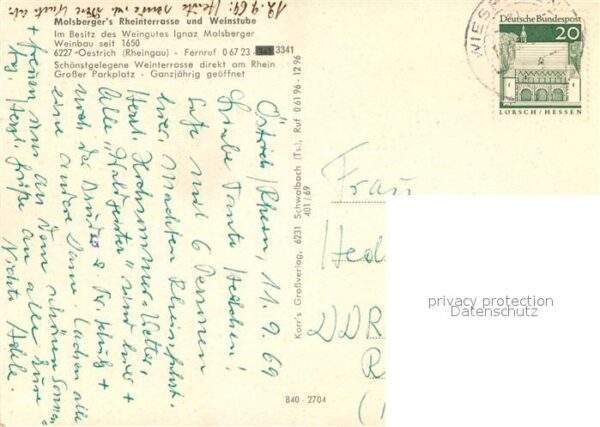 12.9.69: Heute
Molsberger's Rheinterrasse und Weinstube
Im Besitz des Weingutes Ignaz Molsberger
Weinbau seit 1650
6227 Oestrich (Rheingau) - Fernruf 0 67 23 - 3341
Schönstgelegene Weinterrasse direkt am Rhein
Großer Parkplatz - Ganzjährig geöffnet
Östrich/Rhein, 11.9.69
Liebe Tante Hedchen!
mit 6 Personen
hier, machten Rheinfahrt.
Herrl. Hochsommer-Wetter,
Alle "Waldgeister" sind hier +
noch die Brüder + Fr. Schulz +
eine andere Dame. Lachen alle
+ freuen uns an dem schönen Sonnen
tag. Herzl. Grüße an alle Eure
Nichte Adele.
Korr's Großverlag, 6231 Schwalbach (Ts.), Ruf 0 61 96 - 12 96
401/69
840 - 2704
WIESB
Deutsche Bundespost
20
LORSCH/HESSEN
Frau
DDR
privacy protection
Datenschutz